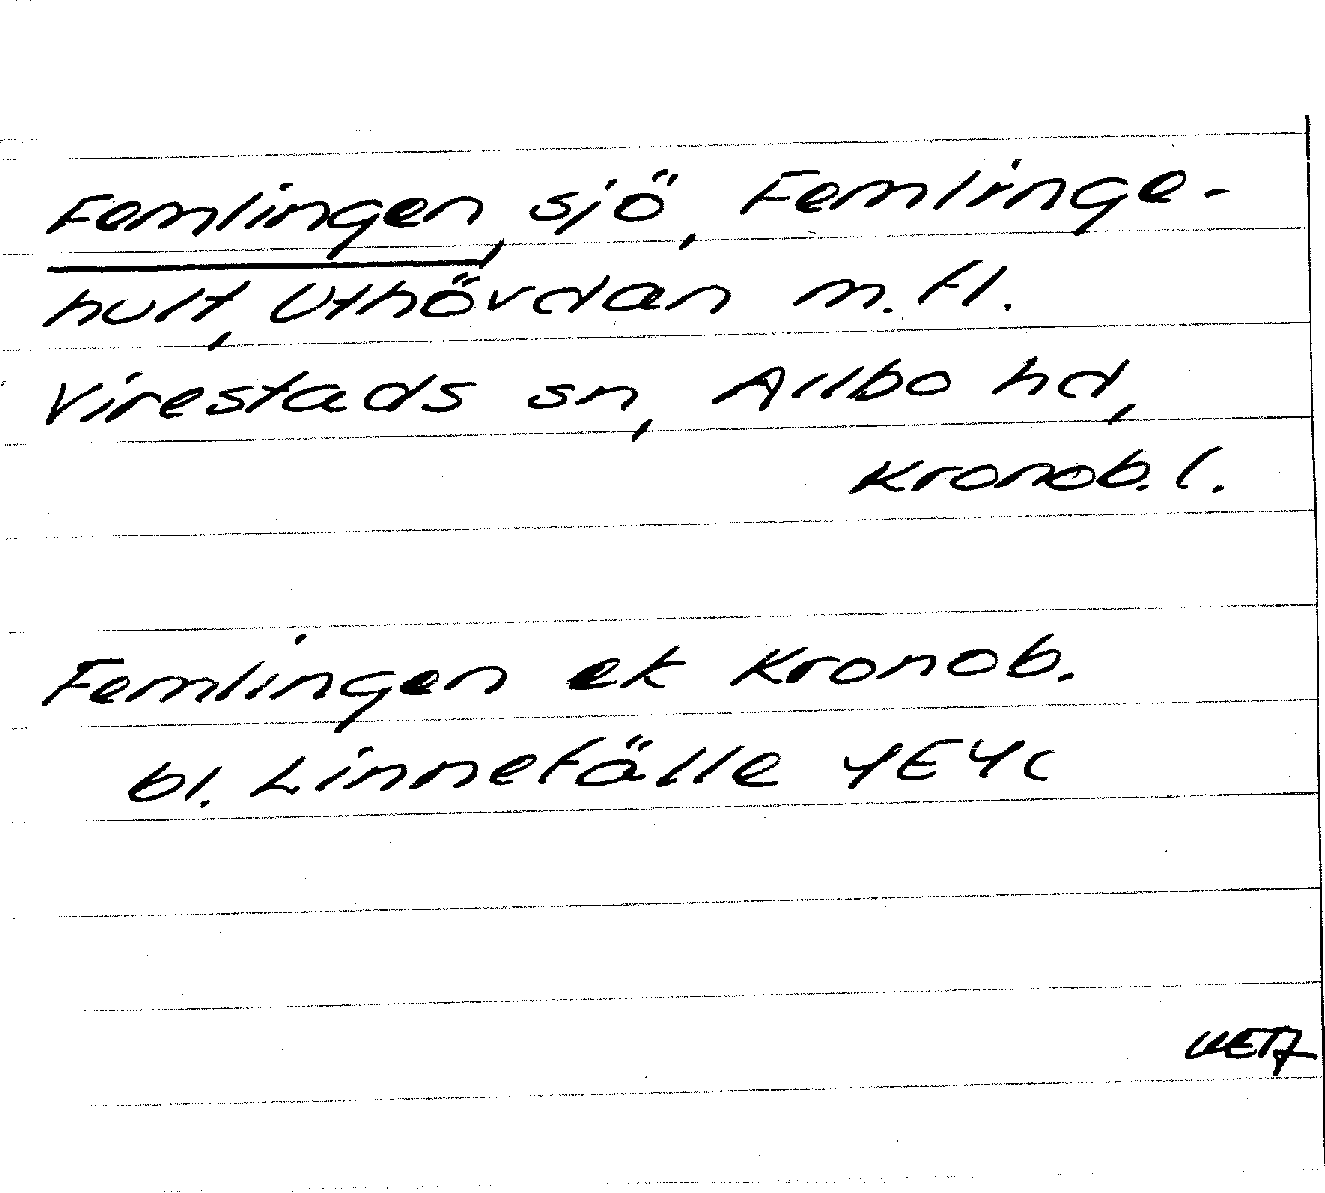 Femlingen, sjö, Femlinge-
hult, Uthövdan m.fl.
Virestads sn, Allbo hd,
Kronob. l.
Femlingen ek Kronob.
bl. Linnefälle 4E4c